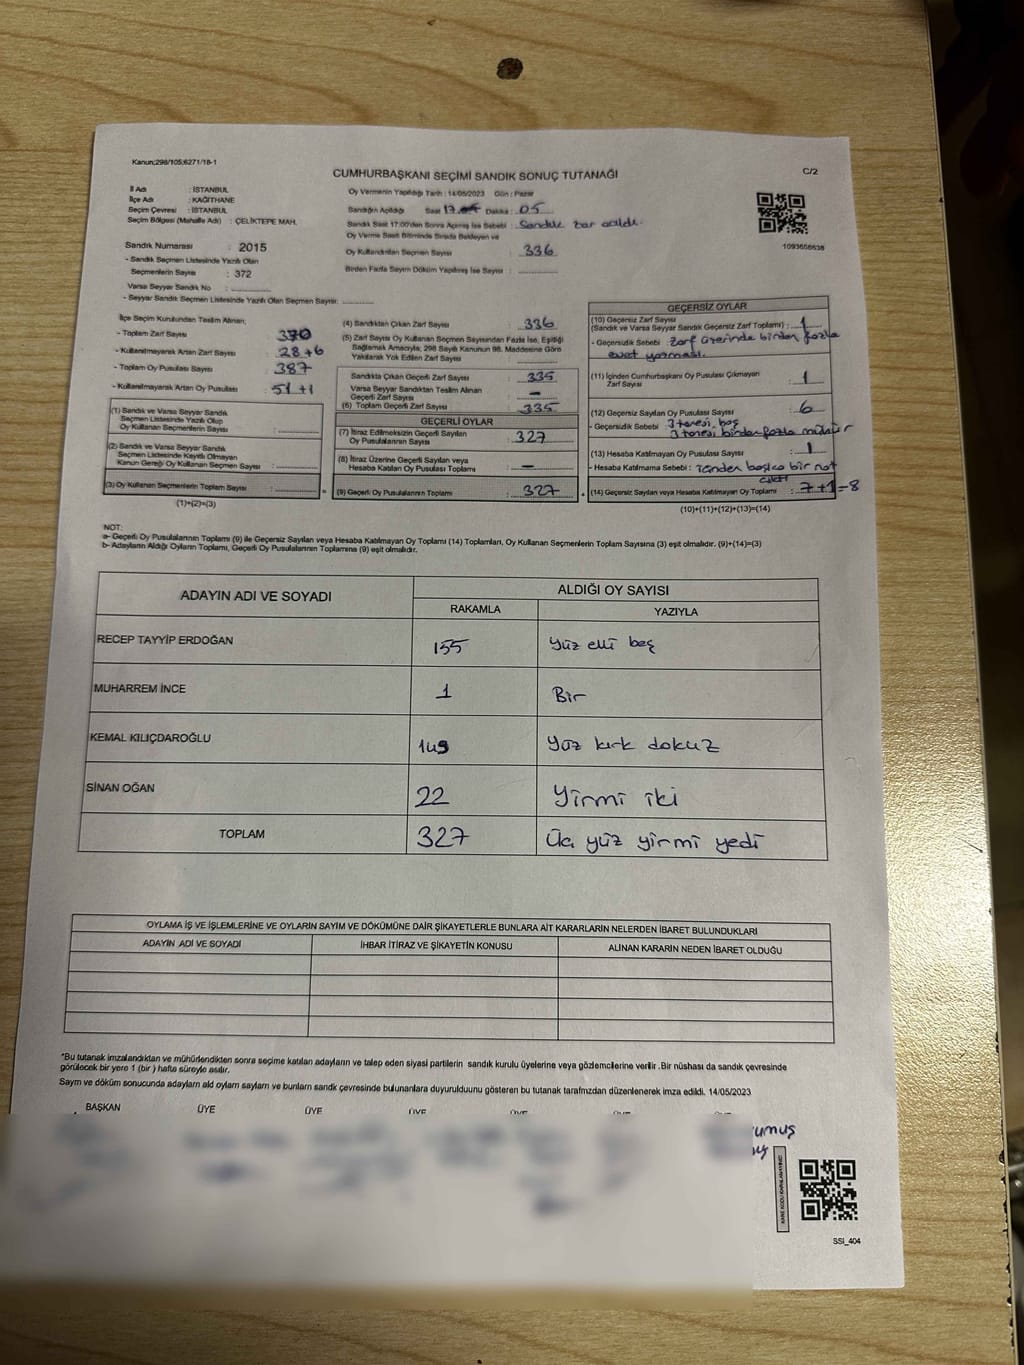 Kanun;298/105;6271/18-1
CUMHURBAŞKANI SEÇİMİ SANDIK SONUÇ TUTANAĞI
C/2
İl Adı : İSTANBUL
İlçe Adı : KAĞITHANE
Seçim Çevresi : İSTANBUL
Seçim Bölgesi (Mahalle Adı) : ÇELİKTEPE MAH.
Sandık Numarası : 2015
- Sandık Seçmen Listesinde Yazılı Olan
Seçmenlerin Sayısı : 372
Varsa Seyyar Sandık No :
- Seyyar Sandık Seçmen Listesinde Yazılı Olan Seçmen Sayısı:
Oy Vermenin Yapıldığı Tarih : 14/05/2023 Gün : Pazar
Sandığın Açıldığı Saat 17 Dakika : 05
Sandık Saat 17:00'den Sonra Açılmış İse Sebebi : Sandık zar açıldı.
Oy Verme Saati Bitiminde Sırada Bekleyen ve
Oy Kullandırılan Seçmen Sayısı : 336
Birden Fazla Sayım Döküm Yapılmış İse Sayısı :
1093656638
İlçe Seçim Kurulundan Teslim Alınan;
- Toplam Zarf Sayısı : 370
- Kullanılmayarak Artan Zarf Sayısı : 28+6
- Toplam Oy Pusulası Sayısı : 387
- Kullanılmayarak Artan Oy Pusulası : 51+1
(1) Sandık ve Varsa Seyyar Sandık
Seçmen Listesinde Yazılı Olup
Oy Kullanan Seçmenlerin Sayısı :
(2) Sandık ve Varsa Seyyar Sandık
Seçmen Listesinde Kayıtlı Olmayan
Kanun Gereği Oy Kullanan Seçmen Sayısı :
(3) Oy Kullanan Seçmenlerin Toplam Sayısı :
(1)+(2)=(3)
(4) Sandıktan Çıkan Zarf Sayısı : 336
(5) Zarf Sayısı Oy Kullanan Seçmen Sayısından Fazla İse, Eşitliği
Sağlamak Amacıyla, 298 Sayılı Kanunun 98. Maddesine Göre
Yakılarak Yok Edilen Zarf Sayısı :
Sandıkta Çıkan Geçerli Zarf Sayısı : 335
Varsa Seyyar Sandıktan Teslim Alınan
Geçerli Zarf Sayısı : -
(6) Toplam Geçerli Zarf Sayısı : 335
GEÇERLİ OYLAR
(7) İtiraz Edilmeksizin Geçerli Sayılan
Oy Pusulalarının Sayısı : 327
(8) İtiraz Üzerine Geçerli Sayılan veya
Hesaba Katılan Oy Pusulası Toplamı : -
(9) Geçerli Oy Pusulalarının Toplamı : 327
GEÇERSİZ OYLAR
(10) Geçersiz Zarf Sayısı
(Sandık ve Varsa Seyyar Sandık Geçersiz Zarf Toplamı) : 1
- Geçersizlik Sebebi : Zarf üzerinde birden fazla
evet yazması.
(11) İçinden Cumhurbaşkanı Oy Pusulası Çıkmayan
Zarf Sayısı : 1
(12) Geçersiz Sayılan Oy Pusulası Sayısı : 6
- Geçersizlik Sebebi : 3 tanesi boş
3 tanesi birden fazla mühür
(13) Hesaba Katılmayan Oy Pusulası Sayısı : 1
- Hesaba Katılmama Sebebi : içinden başka bir not
çıktı
(14) Geçersiz Sayılan veya Hesaba Katılmayan Oy Toplamı : 7+1=8
(10)+(11)+(12)+(13)=(14)
NOT:
a- Geçerli Oy Pusulalarının Toplamı (9) ile Geçersiz Sayılan veya Hesaba Katılmayan Oy Toplamı (14) Toplamları, Oy Kullanan Seçmenlerin Toplam Sayısına (3) eşit olmalıdır. (9)+(14)=(3)
b- Adayların Aldığı Oyların Toplamı, Geçerli Oy Pusulalarının Toplamına (9) eşit olmalıdır.
ADAYIN ADI VE SOYADI
ALDIĞI OY SAYISI
RAKAMLA YAZIYLA
RECEP TAYYİP ERDOĞAN 155 Yüz elli beş
MUHARREM İNCE 1 Bir
KEMAL KILIÇDAROĞLU 149 Yüz kırk dokuz
SİNAN OĞAN 22 Yirmi iki
TOPLAM 327 Üç yüz yirmi yedi
OYLAMA İŞ VE İŞLEMLERİNE VE OYLARIN SAYIM VE DÖKÜMÜNE DAİR ŞİKAYETLERLE BUNLARA AİT KARARLARIN NELERDEN İBARET BULUNDUKLARI
ADAYIN ADI VE SOYADI İHBAR İTİRAZ VE ŞİKAYETİN KONUSU ALINAN KARARIN NEDEN İBARET OLDUĞU
*Bu tutanak imzalandıktan ve mühürlendikten sonra seçime katılan adayların ve talep eden siyasi partilerin sandık kurulu üyelerine veya gözlemcilerine verilir .Bir nüshası da sandık çevresinde
görülecek bir yere 1 (bir ) hafta süreyle asılır.
Sayım ve döküm sonucunda adayların ald oyların sayların ve bunların sandık çevresinde bulunanlara duyurulduunu gösteren bu tutanak tarafmzdan düzenlenerek imza edildi. 14/05/2023
BAŞKAN ÜYE ÜYE ÜYE ÜYE ÜYE ÜYE
umuş
SSI_404